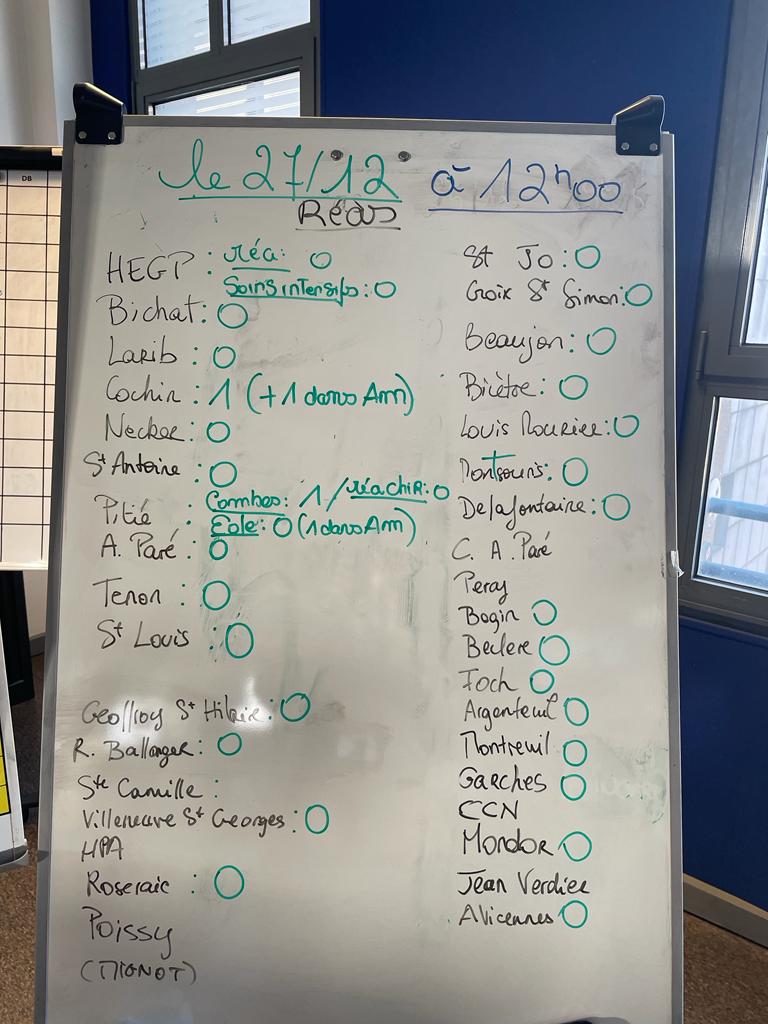 DB
le 27/12 à 12h00
Réas
HEGP : réa: 0
Soins intensifs: 0
Bichat: 0
Larib : 0
Cochin : 1 (+1 dans Am)
Necker: 0
St Antoine : 0
Pitié : Combes: 1 / réa chiR: 0
Eole: 0 (1 dans Am)
A. Paré : 0
Tenon : 0
St Louis : 0
Geoffroy St Hilaire : 0
R. Ballanger : 0
Ste Camille :
Villeneuve St Georges : 0
HPA
Roseraie : 0
Poissy
(MIGNOT)
St Jo : 0
Croix St Simon: 0
Beaujon : 0
Bicêtre : 0
Louis Mourier: 0
Montsouris: 0
Delafontaine : 0
C. A. Paré
Percy
Begin 0
Beclere 0
Foch 0
Argenteuil 0
Montreuil 0
Garches 0
CCN
Mondor 0
Jean Verdier
Avicennes 0